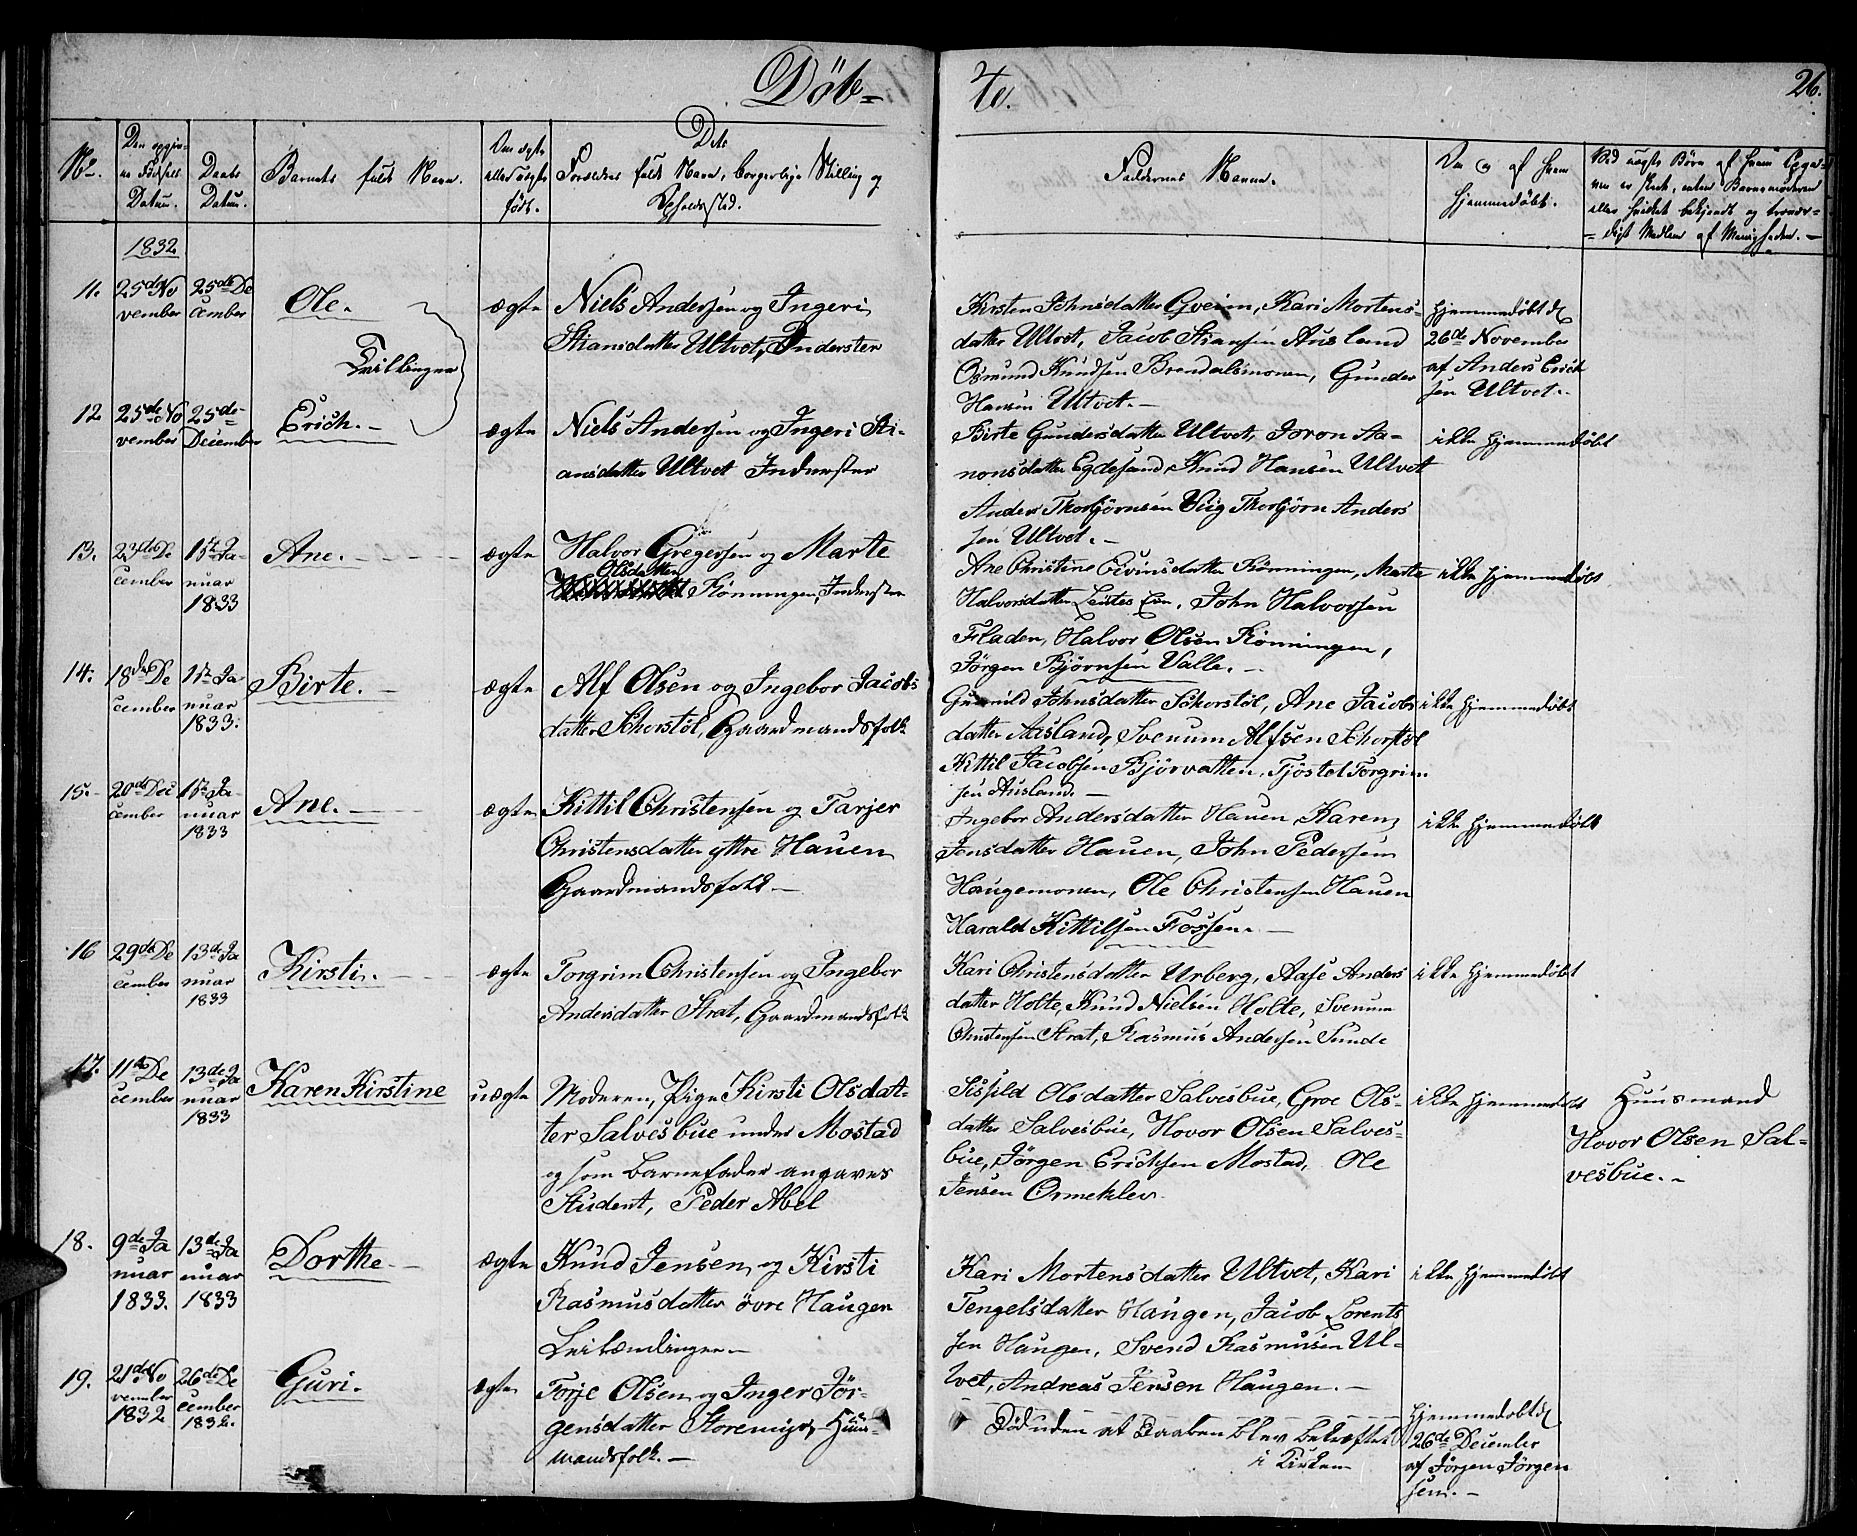 Döb-
te.
26.
No.
Den opgiv-
ne Födsels
Datum.
Daabs
Datum.
Barnets fulde Navn.
Om ægte
eller uægte
født.
Dets
Forældres fulde Navn, borgerlige Stilling og
Opholdssted.
Faddernes Navne.
Om og af hvem
hjemmedøbt.
Ved uægte Børn af hvem Opgav-
en er skeet, enten Barnemoderen
eller hvilket bekjendt og troevær-
digt Medlem af Menigheden.
1832
11.
25de No
vember
25de De
cember
Ole.
ægte
Niels Andersen og Ingeri
Stiansdatter Ultvet, Inderster
Kirsten Johnsdatter Gveim, Kari Mortens-
datter Ultvet, Jacob Stiansen Ausland
Osmund Knudsen Brendalsmonen, Gunder
Hansen Ultvet.
hjemmedøbt d
26de November
af Anders Erich
sen Ultvet.
Tvillinger
12
25de No
vember
25de
December
Erich.
ægte
Niels Andersen og Ingeri Sti-
ansdatter Ultvet Inderster
Birte Gundersdatter Ultvet, Joron Aa-
nonsdatter Egdesand, Knud Hansen Ultvet
Anders Thorbjørnsen Vüg Thorbjørn Anders
sen Ultvet.
ikke hjemmedøbt
13.
23de De
cember
1ste Ja-
nuar
1833
Ane.
ægte
Halvor Gregersen og Marte
Olsdatter
Rønningen, Inderster
Ane Christine Eivinsdatter Rønningen, Marte
Halvorsdatter Lentes Een, John Halvorsen
Fladen, Halvor Olsen Rønningen,
Jørgen Bjørnsen Valle.
ikke hjemmedøbt
14.
18de De
cember
1ste Ja
nuar
1833.
Birte.
ægte
Alf Olsen og Ingebor Jacobs
datter Schorstøl, Gaardmandsfolk
Gunnild Johnsdatter Schorstøl, Ane Jacobs
datter Ausland, Svenum Alfsen Schorstøl
Kittil Jacobsen Bjørvatten, Tjøstel Torgrim
sen Ausland.
ikke hjemmedøbt
15.
20de De
cember
1ste Ja-
nuar
1833
Ane.
ægte
Kittil Christensen og Tarjer
Christensdatter yttre Hauen
Gaardmandsfolk.
Ingebor Andersdatter Hauen, Karen
Jensdatter Hauen, John Pedersen
Haugemonen, Ole Christensen Hauen
Harald Kittilsen Fossen.
ikke hjemmedøbt
16
29de De
cember
13de Ja
nuar
1833
Kirsti.
ægte
Torgrim Christensen og Ingebor
Andersdatter Strat, Gaardmandsfolk
Kari Christensdatter Urberg, Aase Anders
datter Holte, Knud Nielsen Holte, Svenum
Christensen Strat, Rasmus Andersen Sunde
ikke hjemmedøbt
17.
11te De
cember
13de Ja
nuar
1833
Karen Kirstine
uægte
Moderen, Pige Kirsti Olsdat-
ter Salvesbue under Mostad
og som Barnefader angaves
Student, Peder Abel
Sissild Olsdatter Salvesbue, Groe Ols-
datter Salvesbue, Hovor Olsen Salves-
bue, Jørgen Erichsen Mostad, Ole
Jensen Ormeklev.
ikke hjemmedøbt
Huusmand
Hovor Olsen Sal-
vesbue.
18.
9de Ja
nuar
1833.
13de Ja
nuar
1833
Dorthe.
ægte
Knud Jensen og Kirsti
Rasmusdatter øvre Haugen
Leilændinger
Kari Mortensdatter Ultvet, Kari
Tengelsdatter Haugen, Jacob Lorents
sen Haugen, Svend Rasmusen Ul-
tvet, Andreas Jensen Haugen.
ikke hjemmedøbt
19.
21de No
vember
1832
26de De
cember
1832.
Guri.
ægte
Torje Olsen og Inger Jør-
gensdatter Storemyr, Huus-
mandsfolk.
Død uden at Daaben blev bekræftet
i Kirken
hjemmedøbt d
26de December
af Jørgen Jørgen
sen.